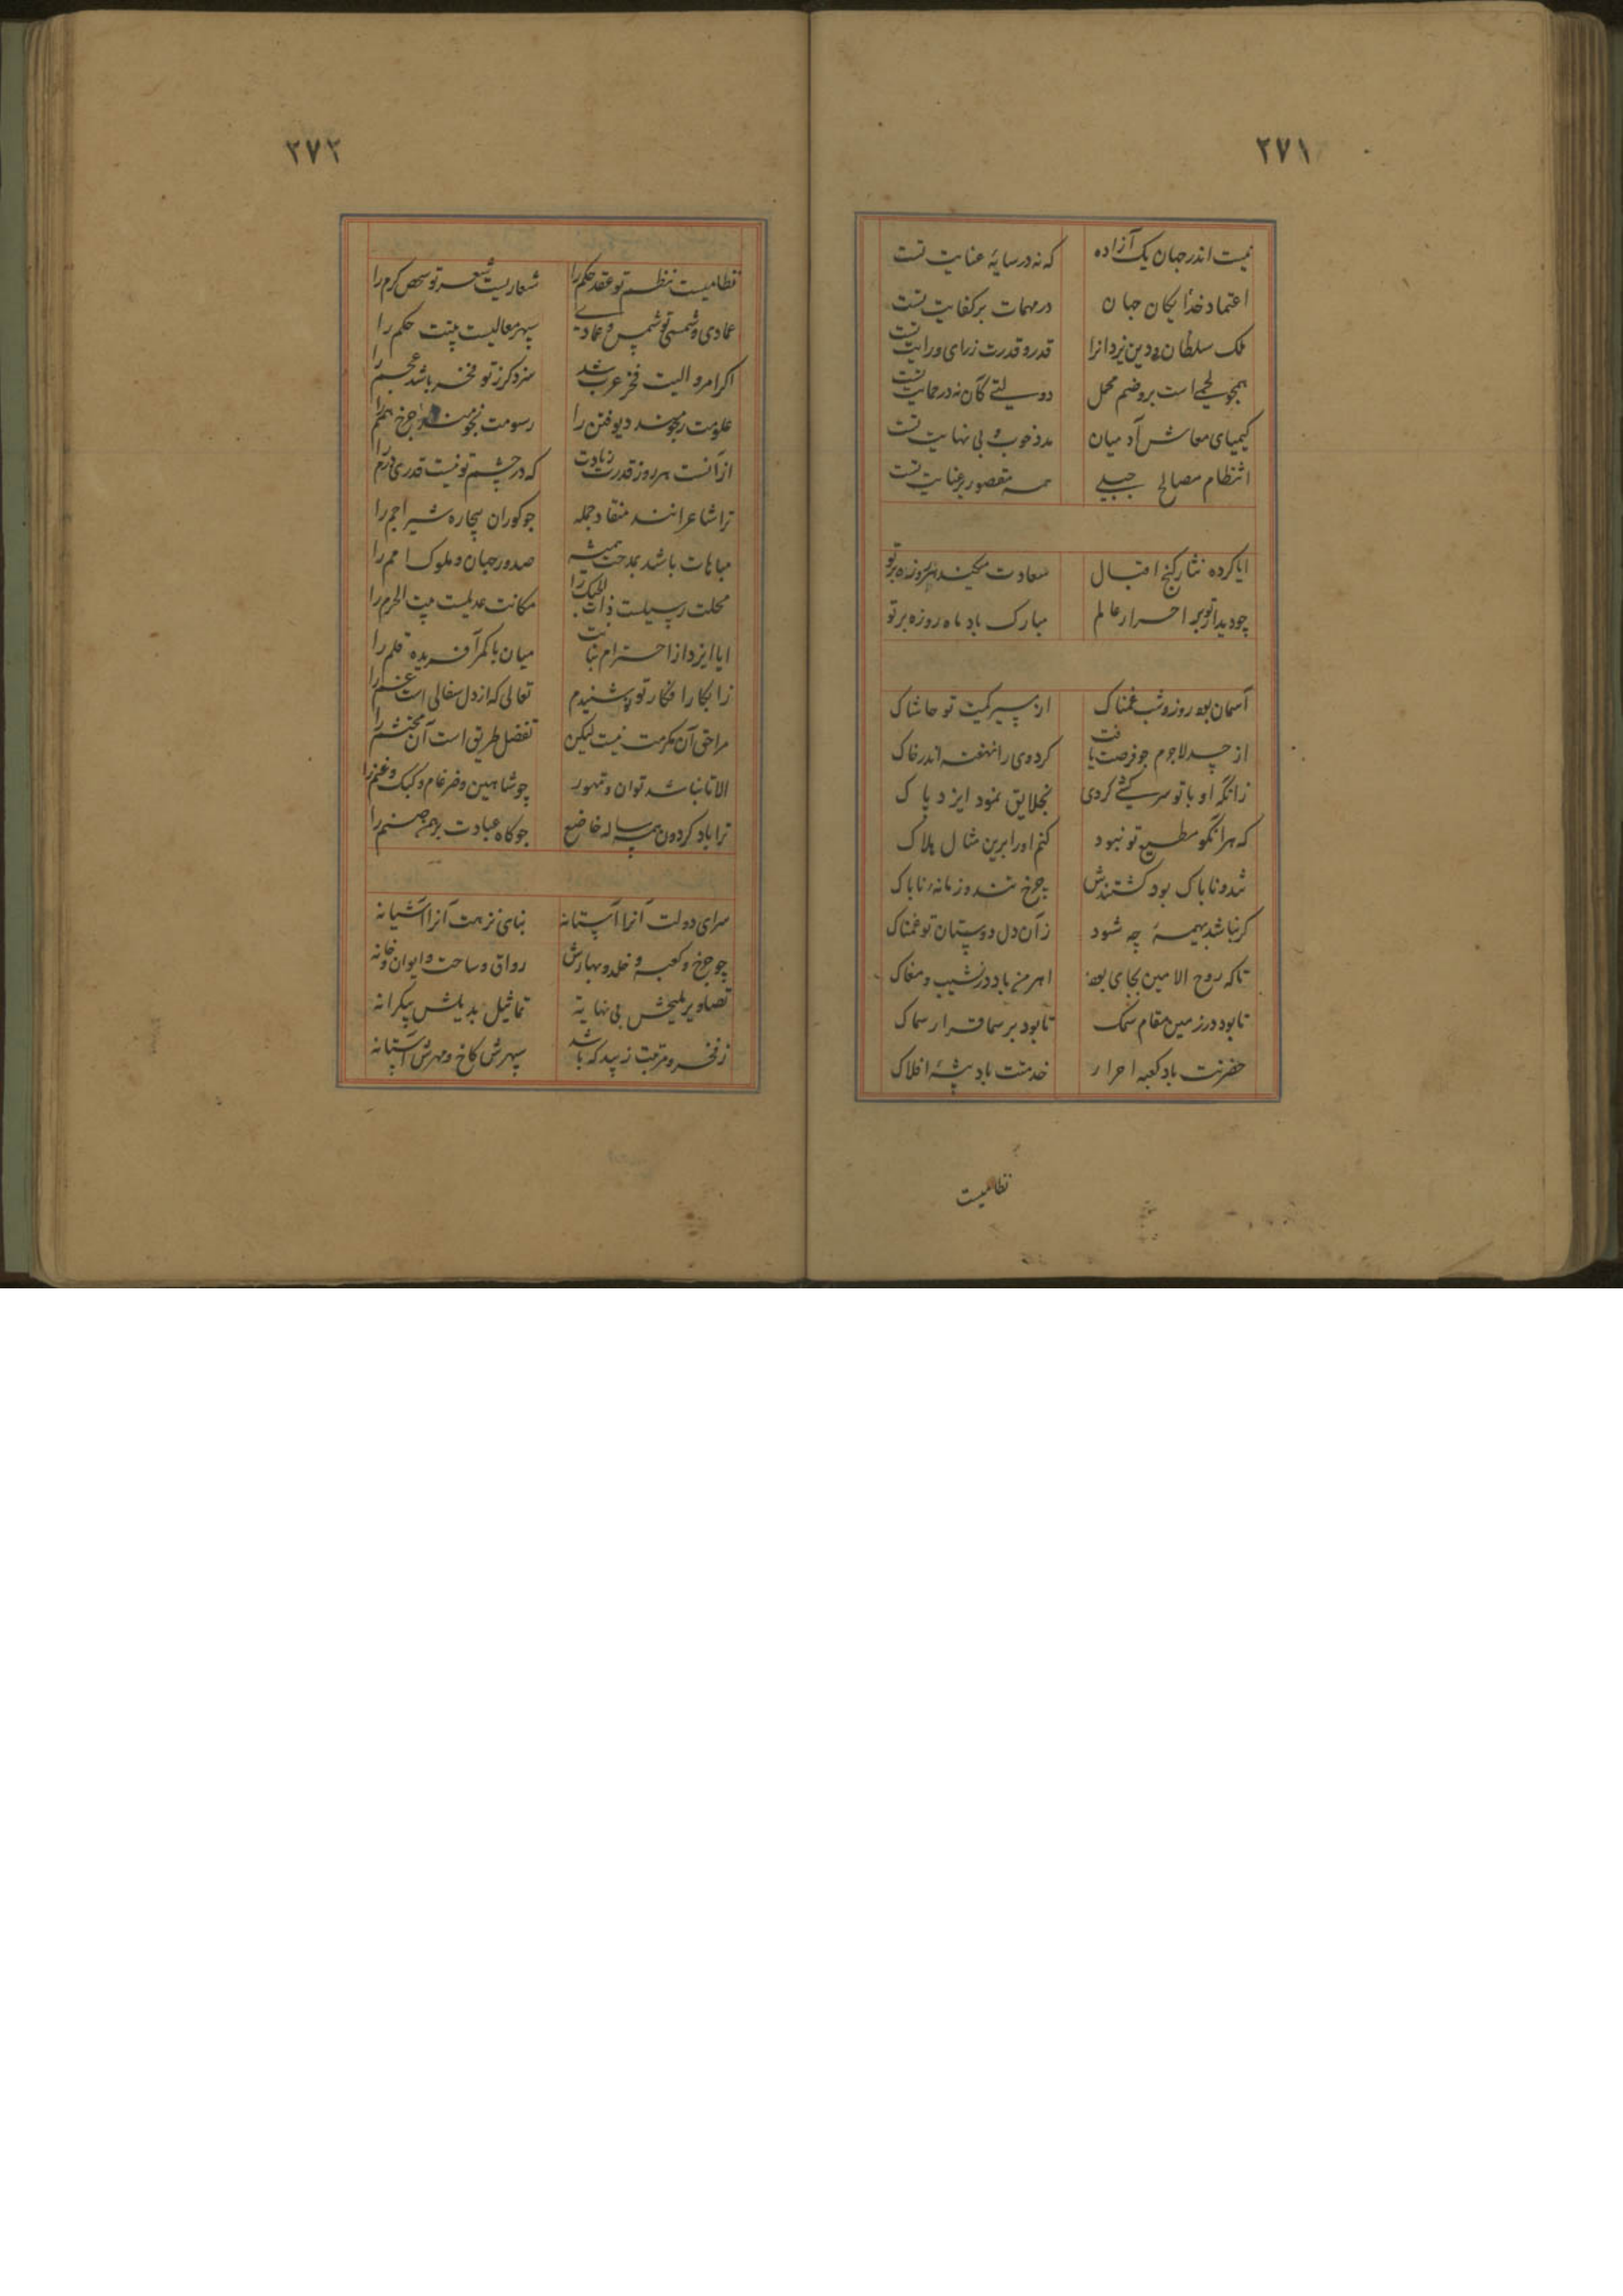 ۲۷۱
نیست اندر جهان یک آزاده که نه در سایهٔ عنایت تست
اعتماد خدایکان جهان در مهمات بر کفایت تست
ملک سلطان و دین یزدانرا قدر و قدرت ز رای و رایت تست
همجو لحمی است بر وضم محل دولتی کان نه در حمایت تست
کیمیای معاش آدمیان مدد خوب و بی نهایت تست
انتظام مصالح جبلی همه مقصور بر عنایت تست
ایا کرده نثار کنج اقبال سعادت میکند هر روزه بر تو
چو دیدار تو بر احرار عالم مبارک باد ماه روزه بر تو
آسمان بود روز و شب غمناک از سیر کمیت تو حاشاک
از حسد لاجرم جو فرصت یافت کرد وی را نهفته اندر خاک
زانکه او با تو سرکشی کردی بخلایق نمود ایزد پاک
که هر انکو مطیع تو نبود کنم او را برین مثال هلاک
تند و ناباک بود کشتندش جرخ تند و زمانه ناباک
کر نباشد بهیمهٔ چه شود زان دل دوستان تو غمناک
تا که روح الامین بجای بود اهرمن باد در نشیب و مغاک
تا بود در زمین مقام سمک تا بود بر سما قرار سماک
حضرتت باد کعبه احرار خدمتت باد پیشهٔ افلاک
نظامیست
۲۷۲
نظامیست نظم تو عقد حکم را شعاریست شعر تو شخص کرم را
عمادی و شمسی تو شمس و عمادی سپهر معالیست بیتت حکم را
اکر امرو الیت فخر عرب شد سزد کرز تو مفخر باشد عجم را
علومت رجومند دیو فتن را رسومت نجومند جرخ همم را
از آنست هر روز قدرت زیادت که در چشم تو نیست قدری درم را
ترا شاعرانند منقاد جمله جو کوران بیچاره شیر اجم را
مباهات باشد بمدحت همیشه صدور جهان و ملوک امم را
محلت رسیلست ذات الحبک را مکانت عدیلست بیت الحرم را
ایا ایزد از احترام بنانت میان با کمر آفریده قلم را
ز ابکار افکار تو بشنیدم تعالی که از دل سفالی است غم را
مرا حق آن مکرمت نیست لیکن تفضل طریق است آن محتشم را
الا تا نباشد توان و تهور چو شاهین و ضرغام و کبک و غنم را
ترا باد کردون همه ساله خاضع جو کاه عبادت برهمن صنم را
سرای دولت آنرا آستانه بنای نزهت آنرا آشیانه
چو جرخ و کعبه و خلد و بهارش رواق و ساحت و ایوان و خانه
تصاویر ملیحش بی نهایه تماثیل بدیعش بیکرانه
ز فخر و مرتبت زیبد که باشد سپهرش کاخ و مهرش آستانه